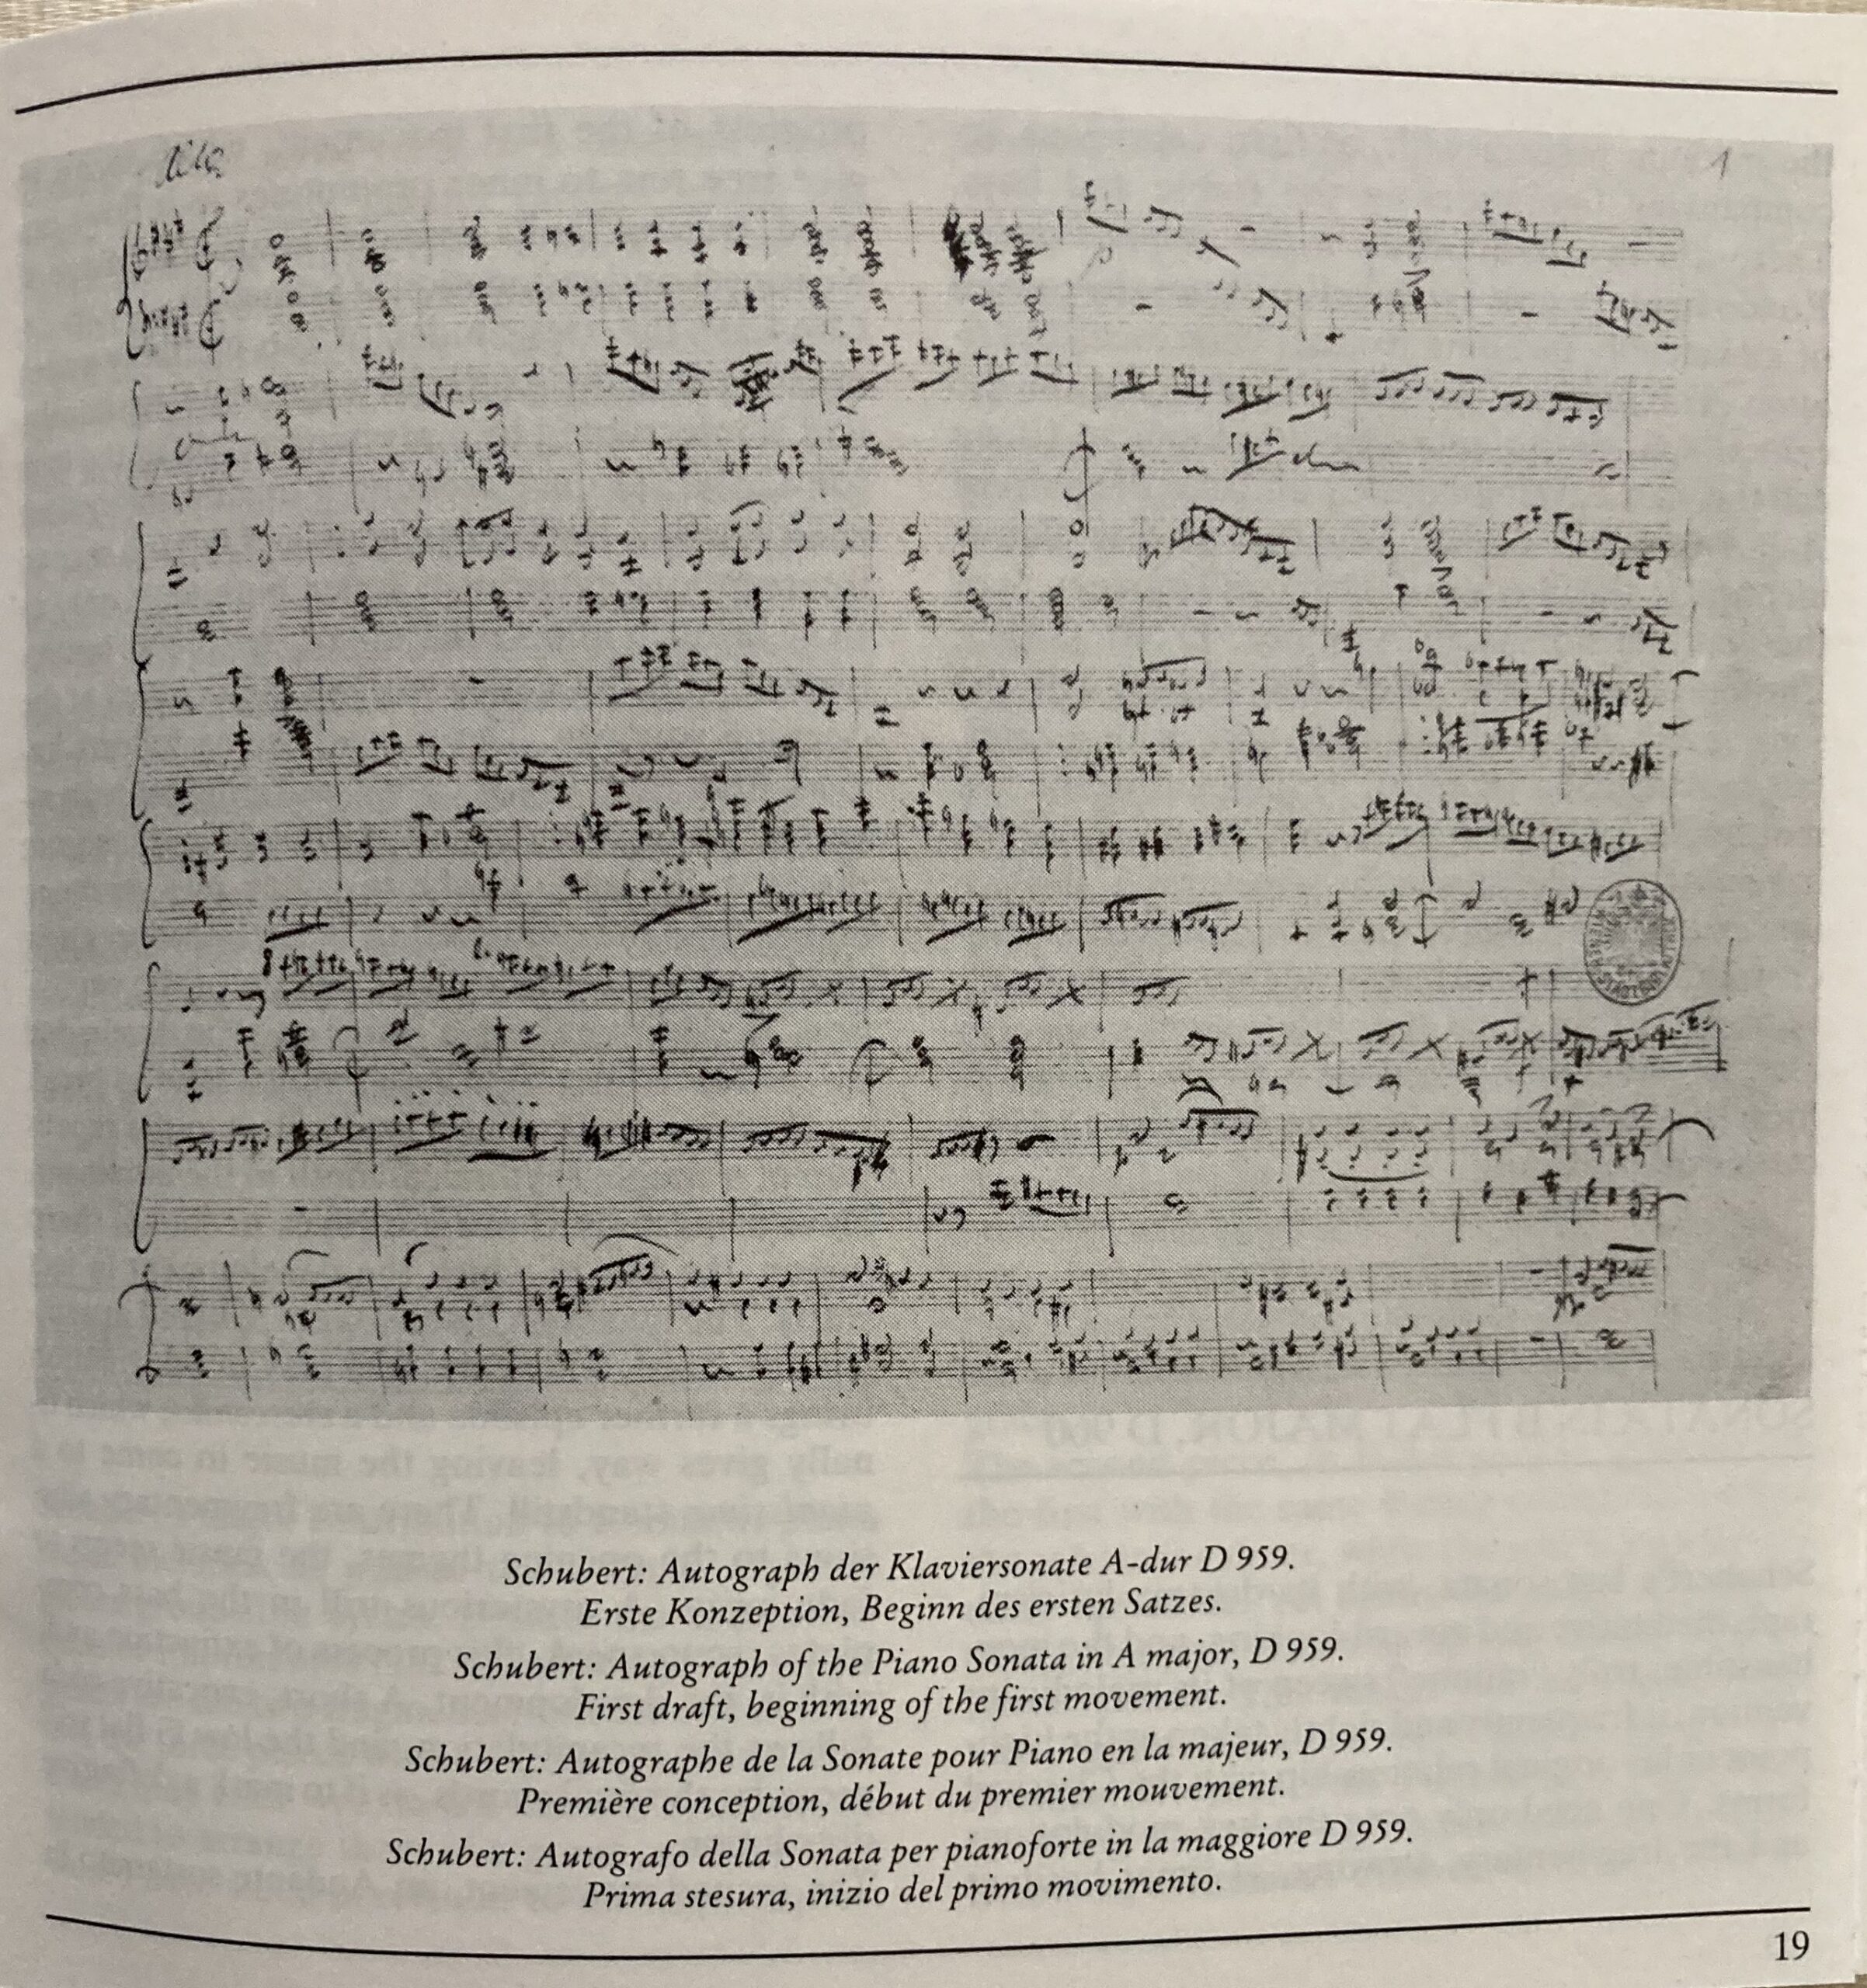 1
Schubert: Autograph der Klaviersonate A-dur D 959.
Erste Konzeption, Beginn des ersten Satzes.
Schubert: Autograph of the Piano Sonata in A major, D 959.
First draft, beginning of the first movement.
Schubert: Autographe de la Sonate pour Piano en la majeur, D 959.
Première conception, début du premier mouvement.
Schubert: Autografo della Sonata per pianoforte in la maggiore D 959.
Prima stesura, inizio del primo movimento.
19